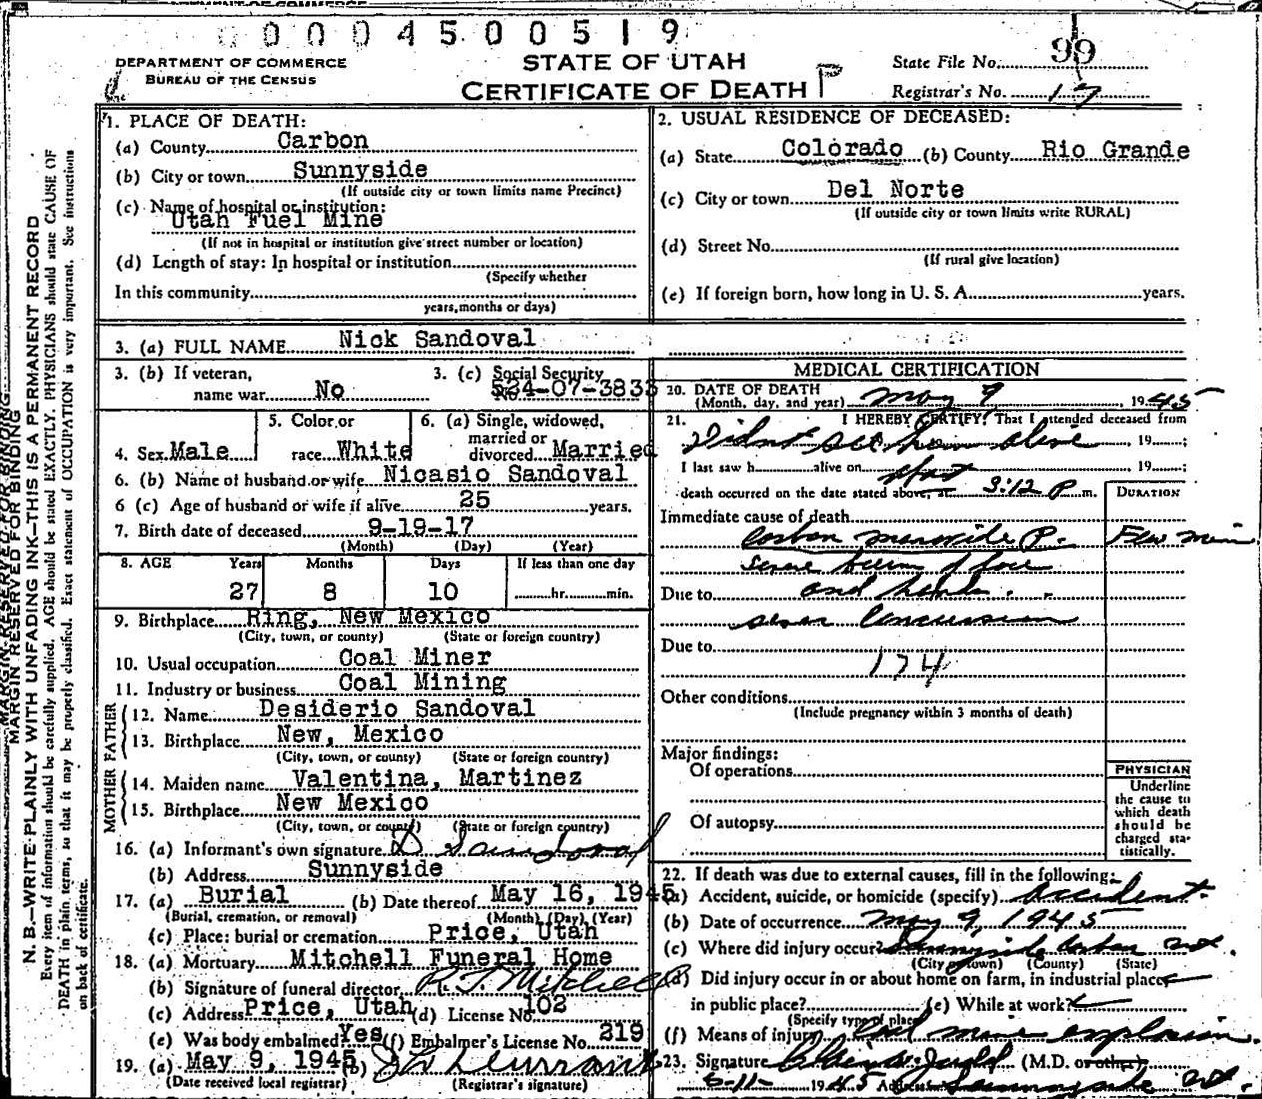 0004500519
DEPARTMENT OF COMMERCE
BUREAU OF THE CENSUS
STATE OF UTAH
CERTIFICATE OF DEATH
State File No. 99
Registrar's No. 17
MARGIN RESERVED FOR BINDING
N. B.—WRITE PLAINLY WITH UNFADING INK—THIS IS A PERMANENT RECORD
Every item of information should be carefully supplied. AGE should be stated EXACTLY. PHYSICIANS should state CAUSE OF
DEATH in plain terms, so that it may be properly classified. Exact statement of OCCUPATION is very important. See instructions
on back of certificate.
1. PLACE OF DEATH:
(a) County Carbon
(b) City or town Sunnyside
(If outside city or town limits name Precinct)
(c) Name of hospital or institution:
Utah Fuel Mine
(If not in hospital or institution give street number or location)
(d) Length of stay: In hospital or institution
(Specify whether
In this community
years, months or days)
2. USUAL RESIDENCE OF DECEASED:
(a) State Colorado (b) County Rio Grande
(c) City or town Del Norte
(If outside city or town limits write RURAL)
(d) Street No.
(If rural give location)
(e) If foreign born, how long in U. S. A. years.
3. (a) FULL NAME Nick Sandoval
3. (b) If veteran, name war No
3. (c) Social Security 524-07-3833
4. Sex Male
5. Color or race White
6. (a) Single, widowed, married or divorced Married
6. (b) Name of husband or wife Nicasio Sandoval
6 (c) Age of husband or wife if alive 25 years.
7. Birth date of deceased 9-19-17
(Month) (Day) (Year)
8. AGE Years Months Days If less than one day
27 8 10 hr. min.
9. Birthplace Ring, New Mexico
(City, town, or county) (State or foreign country)
10. Usual occupation Coal Miner
11. Industry or business Coal Mining
FATHER
12. Name Desiderio Sandoval
13. Birthplace New, Mexico
(City, town, or county) (State or foreign country)
MOTHER
14. Maiden name Valentina, Martinez
15. Birthplace New Mexico
(City, town, or county) (State or foreign country)
16. (a) Informant's own signature D Sandoval
(b) Address Sunnyside
17. (a) Burial (b) Date thereof May 16, 1945
(Burial, cremation, or removal) (Month) (Day) (Year)
(c) Place: burial or cremation Price, Utah
18. (a) Mortuary Mitchell Funeral Home
(b) Signature of funeral director R. J. Mitchell
(c) Address Price, Utah (d) License No. 102
(e) Was body embalmed Yes (f) Embalmer's License No. 219
19. (a) May 9, 1945 (b)
(Date received local registrar) (Registrar's signature)
MEDICAL CERTIFICATION
20. DATE OF DEATH
(Month, day, and year) May 9, 1945
21. I HEREBY CERTIFY: That I attended deceased from
Did not see him alive, 19 ;
I last saw h alive on 19 ;
death occurred on the date stated above, at 3:12 P m.
DURATION
Immediate cause of death
Carbon monoxide P. Few min
severe burn of face
Due to and hands.
Concussion
Due to
174
Other conditions
(Include pregnancy within 3 months of death)
Major findings:
Of operations
Of autopsy
PHYSICIAN
Underline
the cause to
which death
should be
charged sta-
tistically.
22. If death was due to external causes, fill in the following:
(a) Accident, suicide, or homicide (specify) Accident
(b) Date of occurrence May 9, 1945
(c) Where did injury occur? Sunnyside Carbon Ut.
(City or town) (County) (State)
(d) Did injury occur in or about home on farm, in industrial place
in public place? (e) While at work?
(Specify type of place)
(f) Means of injury mine explosion.
23. Signature (M.D. or other)
1945 Address Sunnyside Ut.